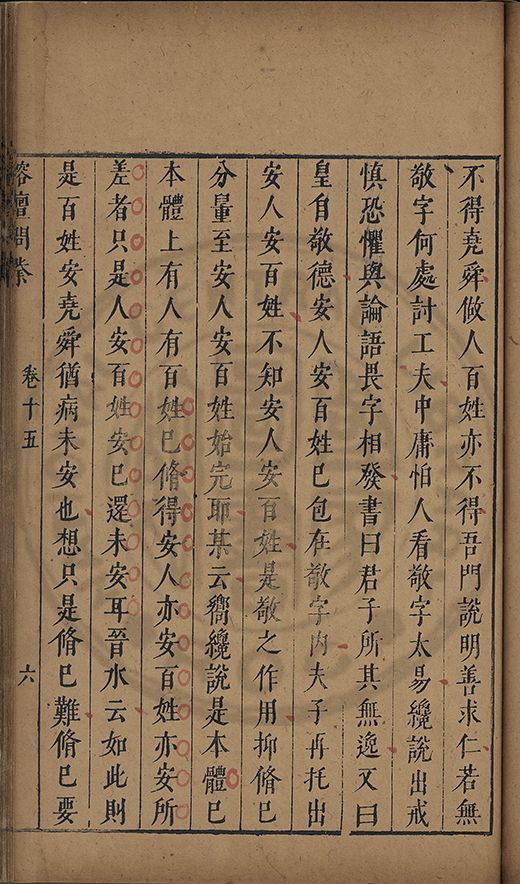 不得堯舜做人百姓亦不得吾門說明善求仁若無
敬字何處討工夫中庸怕人看敬字太易纔說出戒
慎恐懼與論語畏字相發書曰君子所其無逸又曰
皇自敬德安人安百姓已包在敬字內夫子再托出
安人安百姓不知安人安百姓是敬之作用抑脩已
分量至安人安百姓始完耶某云嚮纔說是本體已
本體上有人有百姓已脩得安人亦安百姓亦安所
差者只是人安百姓安已還未安耳晉水云如此則
是百姓安堯舜猶病未安也想只是脩已難脩已要
榕壇問業
卷十五
六